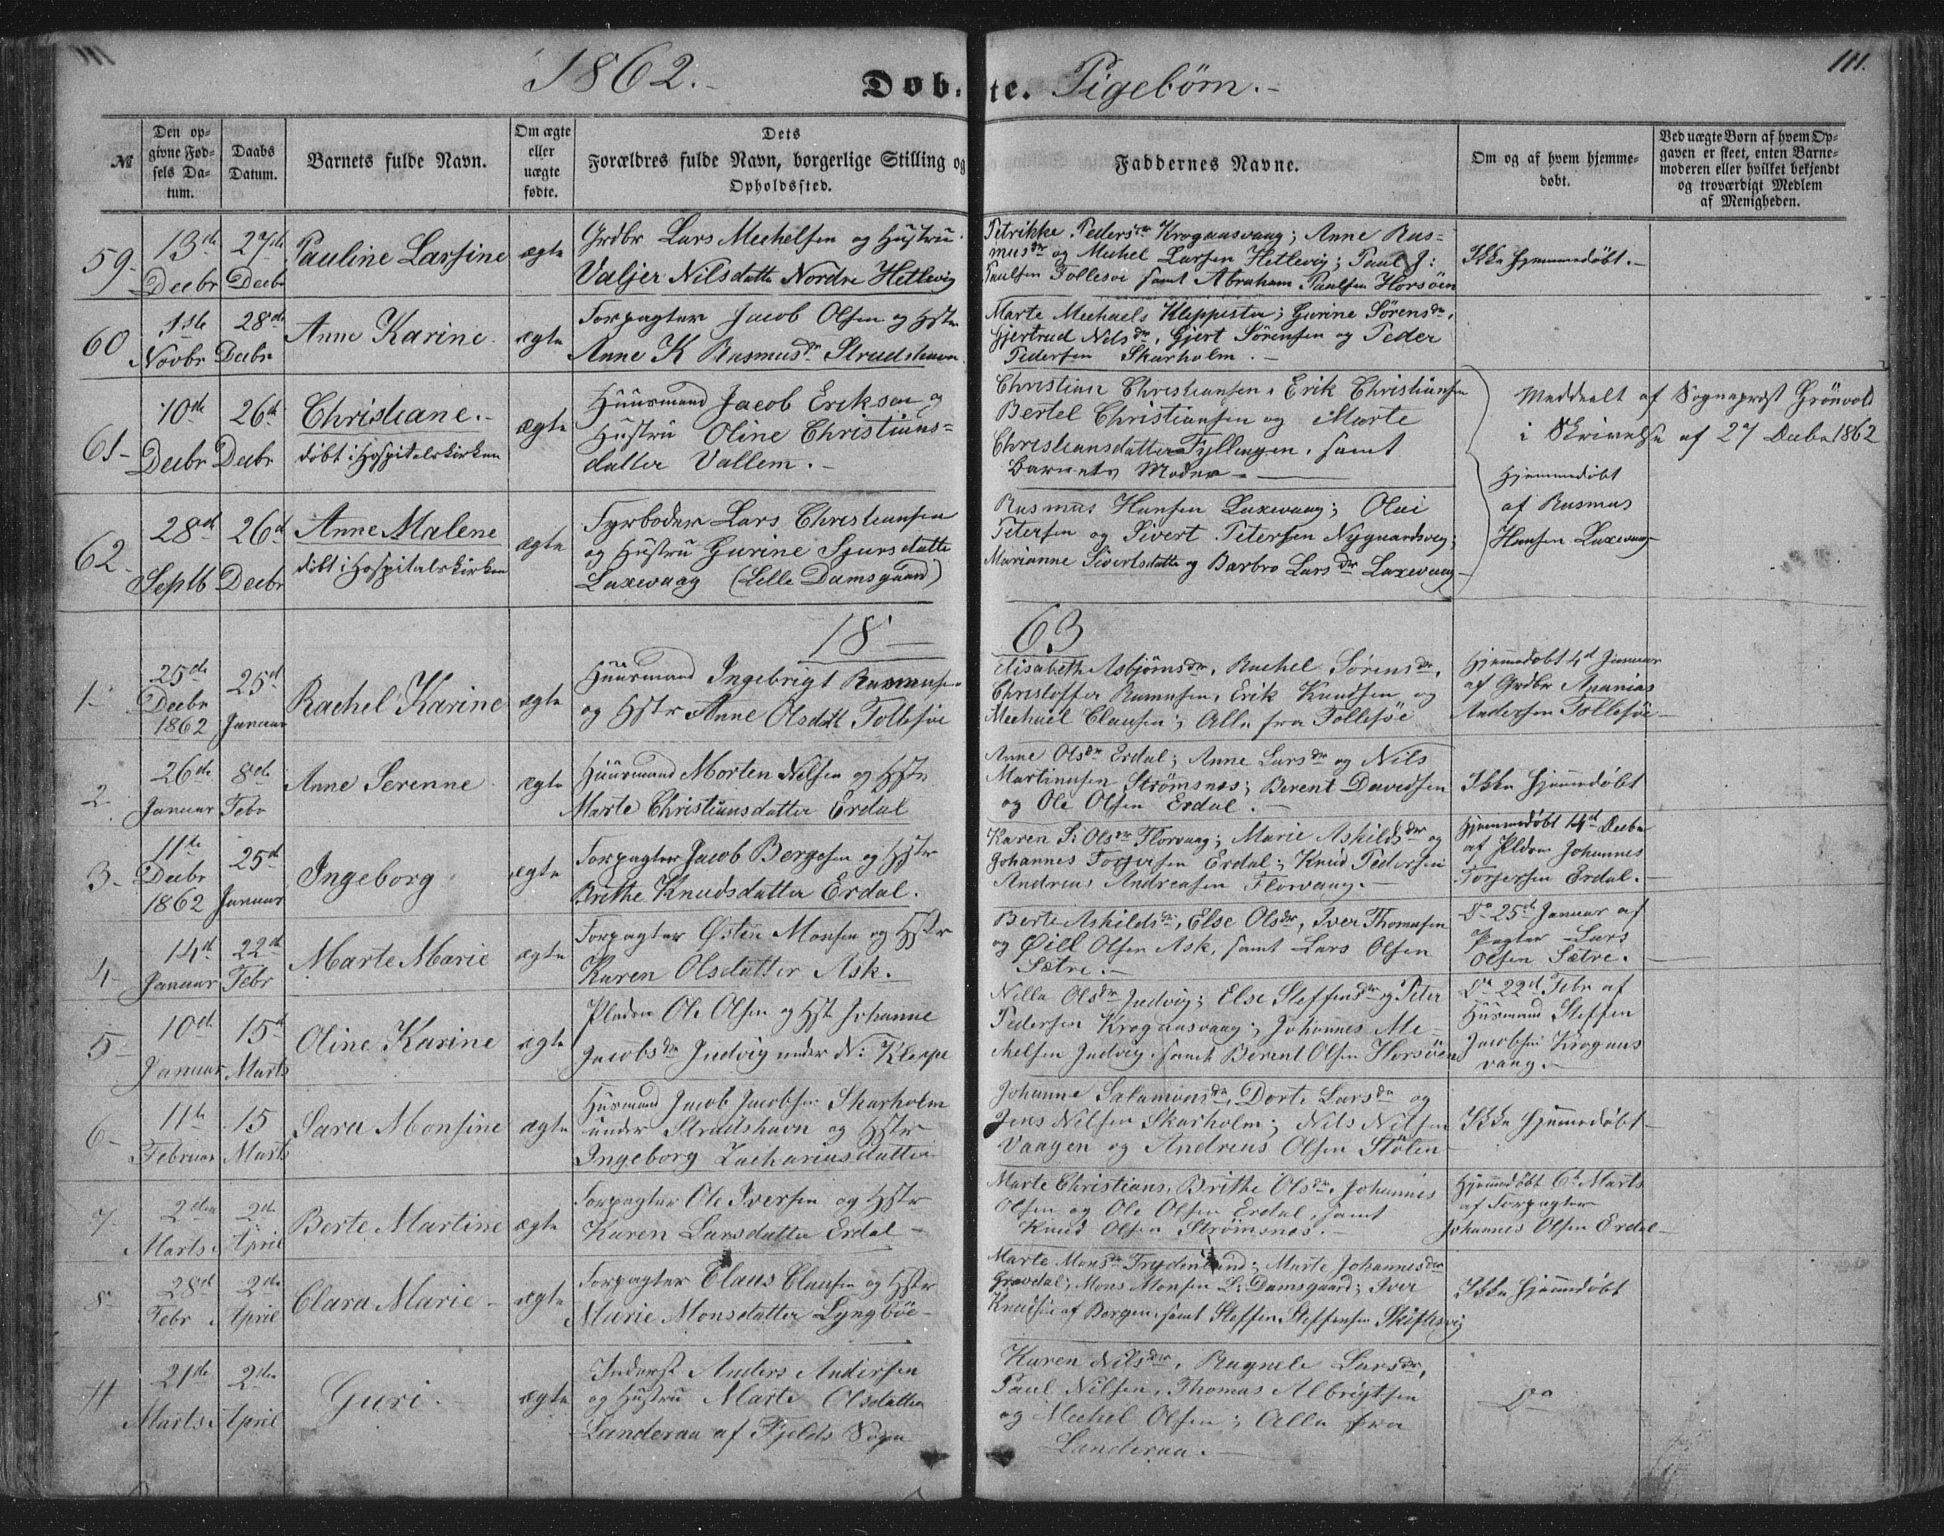 111.
1862.-
Døb. te. Pigebørn.-
№
Den op-
givne Fød-
sels Da-
tum.
Daabs
Datum.
Barnets fulde Navn.
Om ægte
eller
uægte
fødte.
Dets
Forældres fulde Navn, borgerlige Stilling og
Opholdssted.
Faddernes Navne.
Om og af hvem hjemme-
døbt.
Ved uægte Børn af hvem Op-
gaven er skeet, enten Barne-
moderen eller hvilket bekjendt
og troværdigt Medlem
af Menigheden.
59-
13de
Decbr
27de
Decbr
Pauline Larsine
ægte
Grdbr Lars Mechelsen og Hustru
Valjer Nilsdatte Nordre Hetlevig
Petrikke Pedersdtr Krogaasvaag; Anne Ras-
musdr og Mechel Larsen Hetlevig; Paul J:
Paulsen Tollesøe samt Abraham Paulsen Horsøen
Ikke Hjemmedøbt.-
60
1ste
Novbr
28de
Decbr
Anne Karine.
ægte
Forpagter Jacob Olsen og Hstr
Anne K Rasmusdr Strudshavn
Marte Mechaels Kleppestø; Gurine Sørensdr,
Gjertrud Nilsdr, Gjert Sørensen og Peder
Pedersen Skarholm.-
61-
10de
Decbr
26d
Decbr
Christiane.-
døbt i Hospitalskirken
ægte
Huusmand Jacob Eriksen og
Hustru Oline Christians-
datter Vallem.-
Christian Christiansen, Erik Christiansen
Bertel Christiansen og Marte
Christiansdatter Fyllingen, samt
Barnets Moder-
Meddeelt af Sognepræst Grönvold
i Skrivelse af 27 Decbr 1862
62-
28d
Septb
26d
Decbr
Anne Malene
døbt i Hospitalskirken
ægte
Fyrbøder Lars Christiansen
og Hustru Gurine Sjursdatte
Laxevaag (Lille Damsgaard)
Rasmus Hansen Laxevaag; Olai
Petersen og Sivert Petersen Nygaardsvg;
Marianne Sivertsdatte og Barbro Larsdr Laxevaag-
Hjemmedøbt
af Rasmus
Hansen Laxevaag
18 63
1-
25de
Decbr
1862
25d
Januar
Rachel Karine
ægte
Huusmand Ingebrigt Rasmusen
og Hstr Anne Olsdatt Follesøe
Elisabeth Asbjørnsdr, Rachel Sørensdr,
Christoffer Rasmusen, Erik Knudsen og
Mechael Clausen; Alle fra Follesøe
Hjemmedøbt 4d Januar
af Grdbr Ananias
Andersen Follesøe-
2.
26de
Januar
8de
Febr
Anne Serenne
ægte
Huusmand Morten Nilsen og Hstr
Marte Christiansdatter Erdal
Anne Olsdr Erdal; Anne Larsdr og Nils
Martinusen Strømsnes; Berent Davidsen
og Ole Olsen Erdal.-
Ikke Hjemmedøbt
3-
11te
Decbr
1862
25d
Januar
Ingeborg
ægte
Forpagter Jacob Bergesen og Hstr
Brithe Knudsdatter Erdal.
Karen S: Olsdr Florvaag; Marie Askildsdr og
Johannes Torgersen Erdal; Knud Pedersen
Andreas Andreasen Florvaag.-
Hjemmedøbt 14d Decbr
af Pldm Johannes
Torgersen Erdal.-
4-
14d
Januar
22d
Febr
Marte Marie
ægte
Forpagter Østen Monsen og Hstr
Karen Olsdatter Ask.
Berte Askildsdr, Else Olsdr, Iver Thomasen
og Øill Olsen Ask, samt Lars Olsen
Sætre.-
Do 25d Januar af
Pagter Lars
Olsen Sætre.-
5-
10d
Januar
15d
Marts
Oline Karine
ægte
Pladsm Ole Olsen og Hst Johanne
Jacobsdr Judvig under N: Kleppe
Nille Olsdr Judvig; Else Steffensdr og Peter
Pedersen Krogaasvaag; Johannes Me-
chelsen Judvig, samt Berent Olsen Horsøen
Do 22d Febr af
Husmand Steffen
Jacobsen Krogaas
vaag.-
6-
11te
Februar
15
Marts
Sara Monsine
ægte
Husmand Jacob Jacobsen Skarholm
under Strudshavn og Hstr
Ingeborg Zachariasdatter
Johanne Salamonsdr, Dorte Larsdr og
Jens Nilsen Skarholm; Nils Nilsen
Vaagen og Andreas Olsen Stølen
Ikke Hjemmedøbt-
7-
2den
Marts
2de
April
Berte Martine
ægte
Forpagter Ole Iversen og Hstr
Karen Larsdatter Erdal-
Marte Christians, Brithe Olsdr, Johannes
Olsen og Ole Olsen Erdal, samt
Knud Olsen Strømsnes.-
Hjemmedøbt 6d Marts
af Forpagter
Johannes Olsen Erdal-
8-
28d
Febr
2de
April
Clara Marie-
ægte
Forpagter Claus Clausen og Hstr
Marie Monsdatter Lyngbøe-
Marte Monsdr Frydenlund; Marte Johannesdr
Gravdal; Mons Monsen L: Damsgaard; Iver
Knudsen af Bergen, samt Steffen Steffensen Skiftesvig
Ikke Hjemmedøbt
11
21de
Marts
2den
April
Guri.
ægte
Inderst Anders Andersen
og Hustru Marte Olsdatter
Landeraa af Fjelds Sogn
Karen Nilsdr, Ragnele Larsdr,
Paul Nilsen, Thomas Albrigtsen
og Mechel Olsen; Alle fra
Landeraa.-
Do